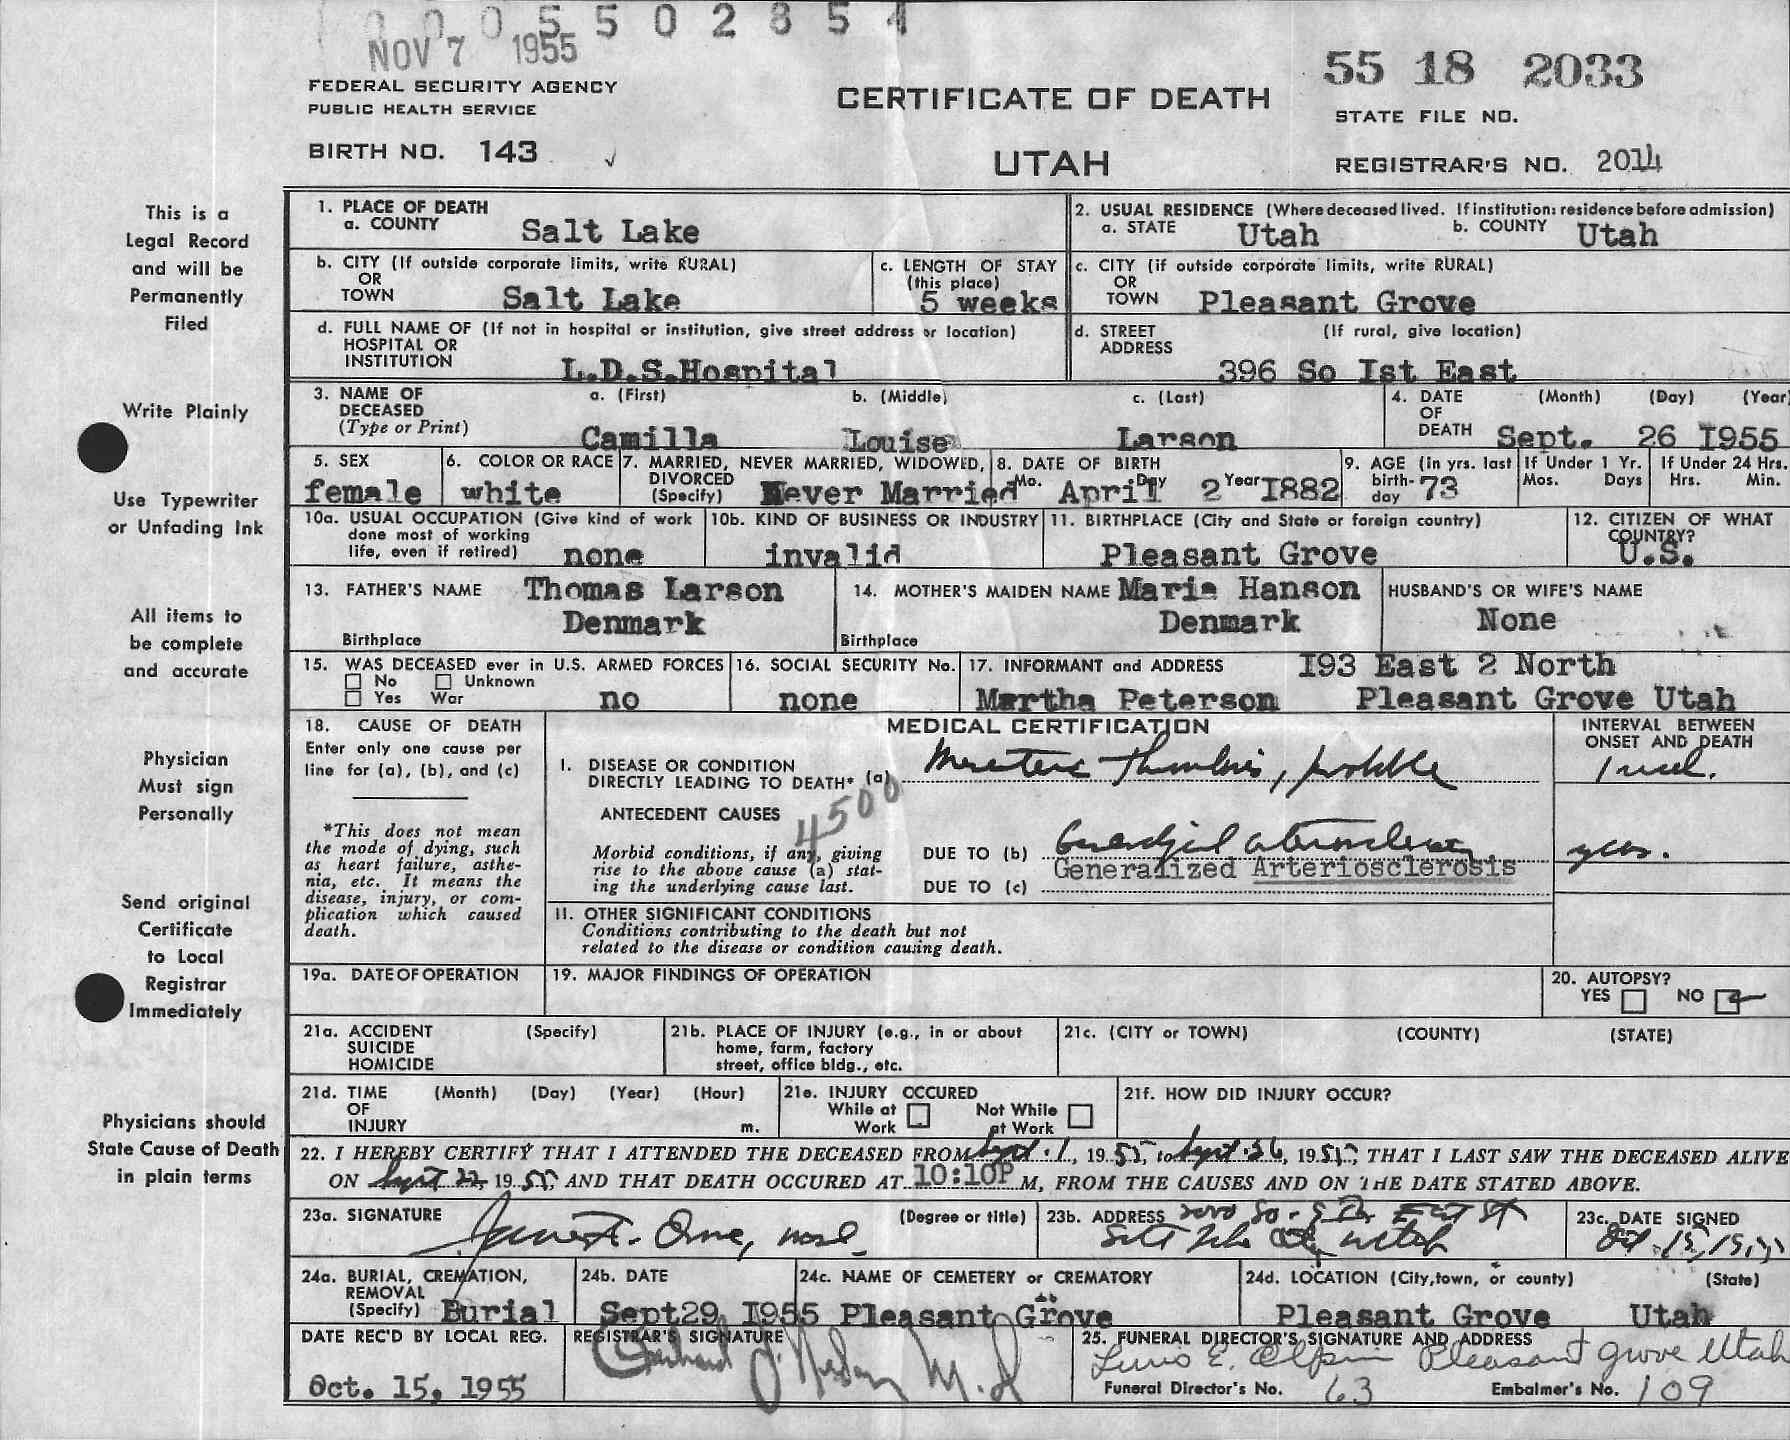 0 0 0 5 5 0 2 8 5 4
NOV 7 1955
55 18 2033
FEDERAL SECURITY AGENCY
PUBLIC HEALTH SERVICE
CERTIFICATE OF DEATH
STATE FILE NO.
BIRTH NO. 143
UTAH
REGISTRAR'S NO. 2014
This is a
Legal Record
and will be
Permanently
Filed
Write Plainly
Use Typewriter
or Unfading Ink
All items to
be complete
and accurate
Physician
Must sign
Personally
Send original
Certificate
to Local
Registrar
Immediately
Physicians should
State Cause of Death
in plain terms
1. PLACE OF DEATH
a. COUNTY Salt Lake
2. USUAL RESIDENCE (Where deceased lived. If institution: residence before admission)
a. STATE Utah b. COUNTY Utah
b. CITY (If outside corporate limits, write RURAL)
OR
TOWN Salt Lake
c. LENGTH OF STAY
(this place)
5 weeks
c. CITY (if outside corporate limits, write RURAL)
OR
TOWN Pleasant Grove
d. FULL NAME OF (If not in hospital or institution, give street address or location)
HOSPITAL OR
INSTITUTION L.D.S.Hospital
d. STREET (If rural, give location)
ADDRESS
396 So Ist East
3. NAME OF
DECEASED
(Type or Print)
a. (First) b. (Middle) c. (Last)
Camilla Louise Larson
4. DATE (Month) (Day) (Year)
OF
DEATH Sept. 26 I955
5. SEX
female
6. COLOR OR RACE
white
7. MARRIED, NEVER MARRIED, WIDOWED,
DIVORCED
(Specify) Never Married
8. DATE OF BIRTH
Mo. April Day 2 Year I882
9. AGE (in yrs. last
birth-
day 73
If Under 1 Yr.
Mos. Days
If Under 24 Hrs.
Hrs. Min.
10a. USUAL OCCUPATION (Give kind of work
done most of working
life, even if retired) none
10b. KIND OF BUSINESS OR INDUSTRY
invalid
11. BIRTHPLACE (City and State or foreign country)
Pleasant Grove
12. CITIZEN OF WHAT
COUNTRY?
U.S.
13. FATHER'S NAME Thomas Larson
Denmark
Birthplace
14. MOTHER'S MAIDEN NAME Marie Hanson
Denmark
Birthplace
HUSBAND'S OR WIFE'S NAME
None
15. WAS DECEASED ever in U.S. ARMED FORCES
No Unknown
Yes War no
16. SOCIAL SECURITY No.
none
17. INFORMANT and ADDRESS I93 East 2 North
Martha Peterson Pleasant Grove Utah
18. CAUSE OF DEATH
Enter only one cause per
line for (a), (b), and (c)
*This does not mean
the mode of dying, such
as heart failure, asthe-
nia, etc. It means the
disease, injury, or com-
plication which caused
death.
MEDICAL CERTIFICATION
INTERVAL BETWEEN
ONSET AND DEATH
I. DISEASE OR CONDITION
DIRECTLY LEADING TO DEATH* (a)
ANTECEDENT CAUSES
4500
Morbid conditions, if any, giving
rise to the above cause (a) stat-
ing the underlying cause last.
DUE TO (b)
Generalized Arteriosclerosis
DUE TO (c)
II. OTHER SIGNIFICANT CONDITIONS
Conditions contributing to the death but not
related to the disease or condition causing death.
19a. DATE OF OPERATION
19. MAJOR FINDINGS OF OPERATION
20. AUTOPSY?
YES NO
21a. ACCIDENT (Specify)
SUICIDE
HOMICIDE
21b. PLACE OF INJURY (e.g., in or about
home, farm, factory
street, office bldg., etc.
21c. (CITY or TOWN) (COUNTY) (STATE)
21d. TIME (Month) (Day) (Year) (Hour)
OF
INJURY m.
21e. INJURY OCCURED
While at Work Not While at Work
21f. HOW DID INJURY OCCUR?
22. I HEREBY CERTIFY THAT I ATTENDED THE DECEASED FROM Sept. 1, 1955, to Sept. 26, 1955, THAT I LAST SAW THE DECEASED ALIVE
ON Sept 22, 1955, AND THAT DEATH OCCURED AT 10:10P M, FROM THE CAUSES AND ON THE DATE STATED ABOVE.
23a. SIGNATURE (Degree or title)
23b. ADDRESS
23c. DATE SIGNED
24a. BURIAL, CREMATION,
REMOVAL
(Specify) Burial
24b. DATE
Sept29 I955
24c. NAME OF CEMETERY or CREMATORY
Pleasant Grove
24d. LOCATION (City, town, or county) (State)
Pleasant Grove Utah
DATE REC'D BY LOCAL REG.
Oct. 15, 1955
REGISTRAR'S SIGNATURE
25. FUNERAL DIRECTOR'S SIGNATURE AND ADDRESS
Pleasant Grove Utah
Funeral Director's No. 63 Embalmer's No. 109